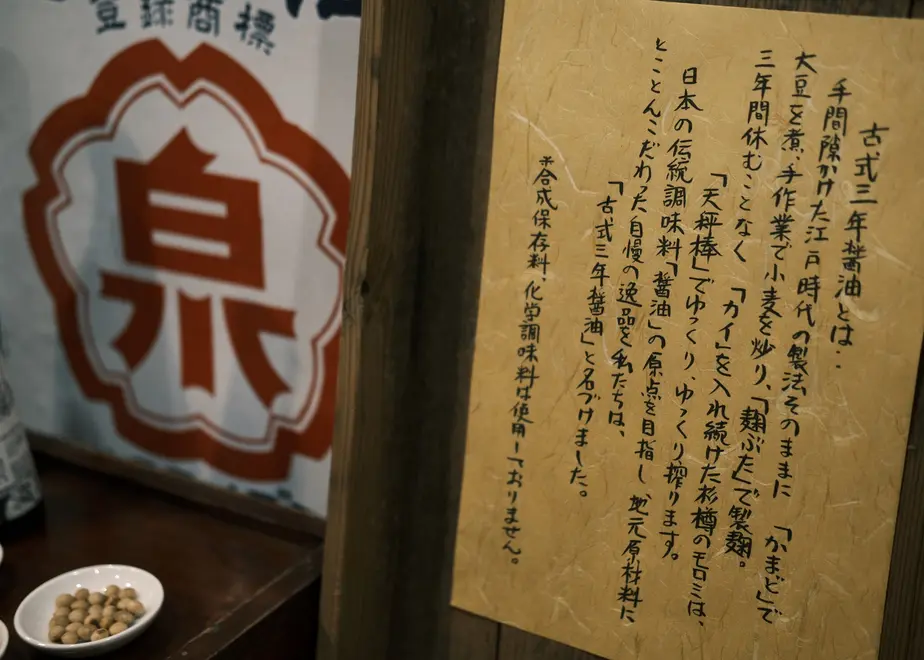 登録商標
泉
古式三年醤油とは‥
手間隙かけた江戸時代の製法そのままに 「かまど」で
大豆を煮、手作業で小麦を炒り、「麹ぶた」で製麹。
三年間休むことなく 「カイ」を入れ続けた杉樽のモロミは、
「天秤棒」でゆっくり、ゆっくり搾ります。
日本の伝統調味料「醤油」の原点を目指し 地元原材料に
とことんこだわった自慢の逸品を私たちは、
「古式三年醤油」と名づけました。
※合成保存料、化学調味料は使用しておりません。